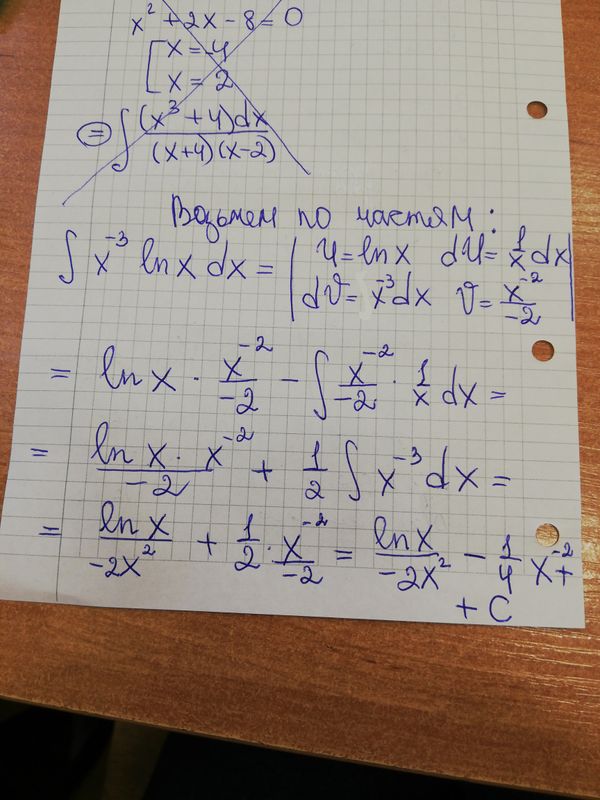 x² + 2x - 8 = 0
[ x = -4
x = 2
= ∫ (x³ + 4)dx / (x+4)(x-2)
Возьмем по частям:
∫ x⁻³ ln x dx = | U = ln x dU = 1/x dx |
| dV = x⁻³dx V = x⁻²/-2 |
= ln x · x⁻²/-2 - ∫ x⁻²/-2 · 1/x dx =
= ln x · x⁻²/-2 + 1/2 ∫ x⁻³ dx =
= ln x/-2x² + 1/2 · x⁻²/-2 = ln x/-2x² - 1/4 x⁻² +
+ C